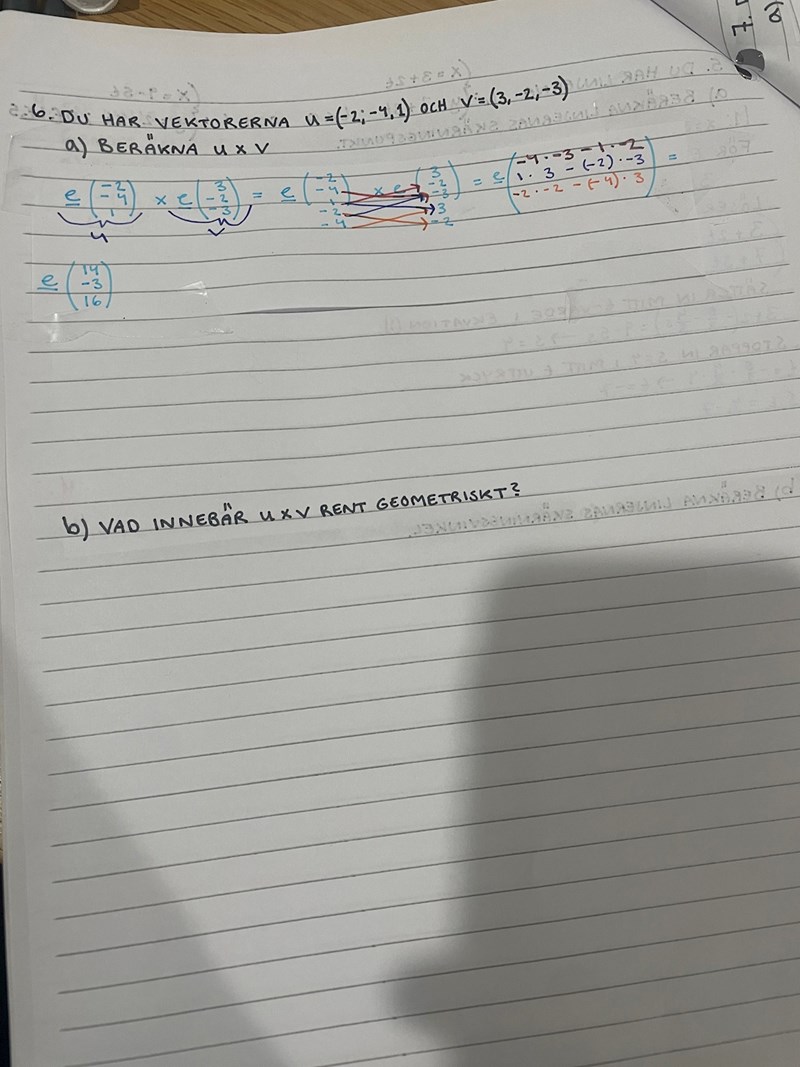 6. DU HAR VEKTORERNA u=(-2,-4,1) OCH V=(3,-2,-3)
a) BERÄKNA u x v
e (-2 -4 1) x e (3 -2 -3) = e (-2 -4 1) x e (3 -2 -3) = e (-4·-3 - 1·-2 1·3 - (-2)·-3 -2·-2 - (-4)·3) =
-2 3
-4 -2
u v
e (14 -3 16)
b) VAD INNEBÄR u x v RENT GEOMETRISKT?
7.
a)